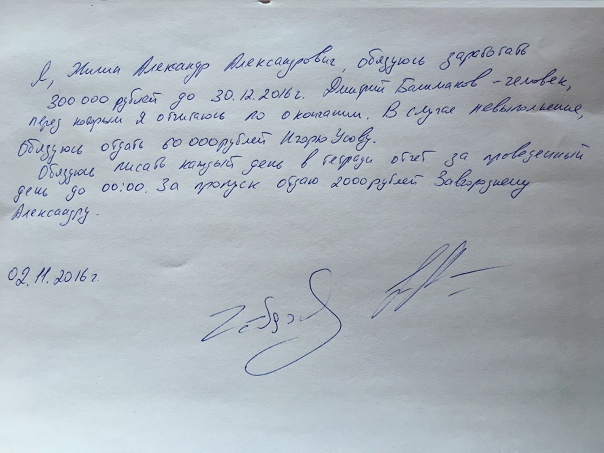 Я, Жилин Александр Александрович, обязуюсь заработать
300 000 рублей до 30.12.2016г. Дмитрий Балмаков - человек,
перед которым я отчитаюсь по окончании. В случае невыполнения,
обязуюсь отдать 60 000 рублей Игорю Усову.
Обязуюсь писать каждый день в тетради отчет за проведенный
день до 00:00. За пропуск отдаю 2000 рублей Завгороднему
Александру.
02.11.2016г.